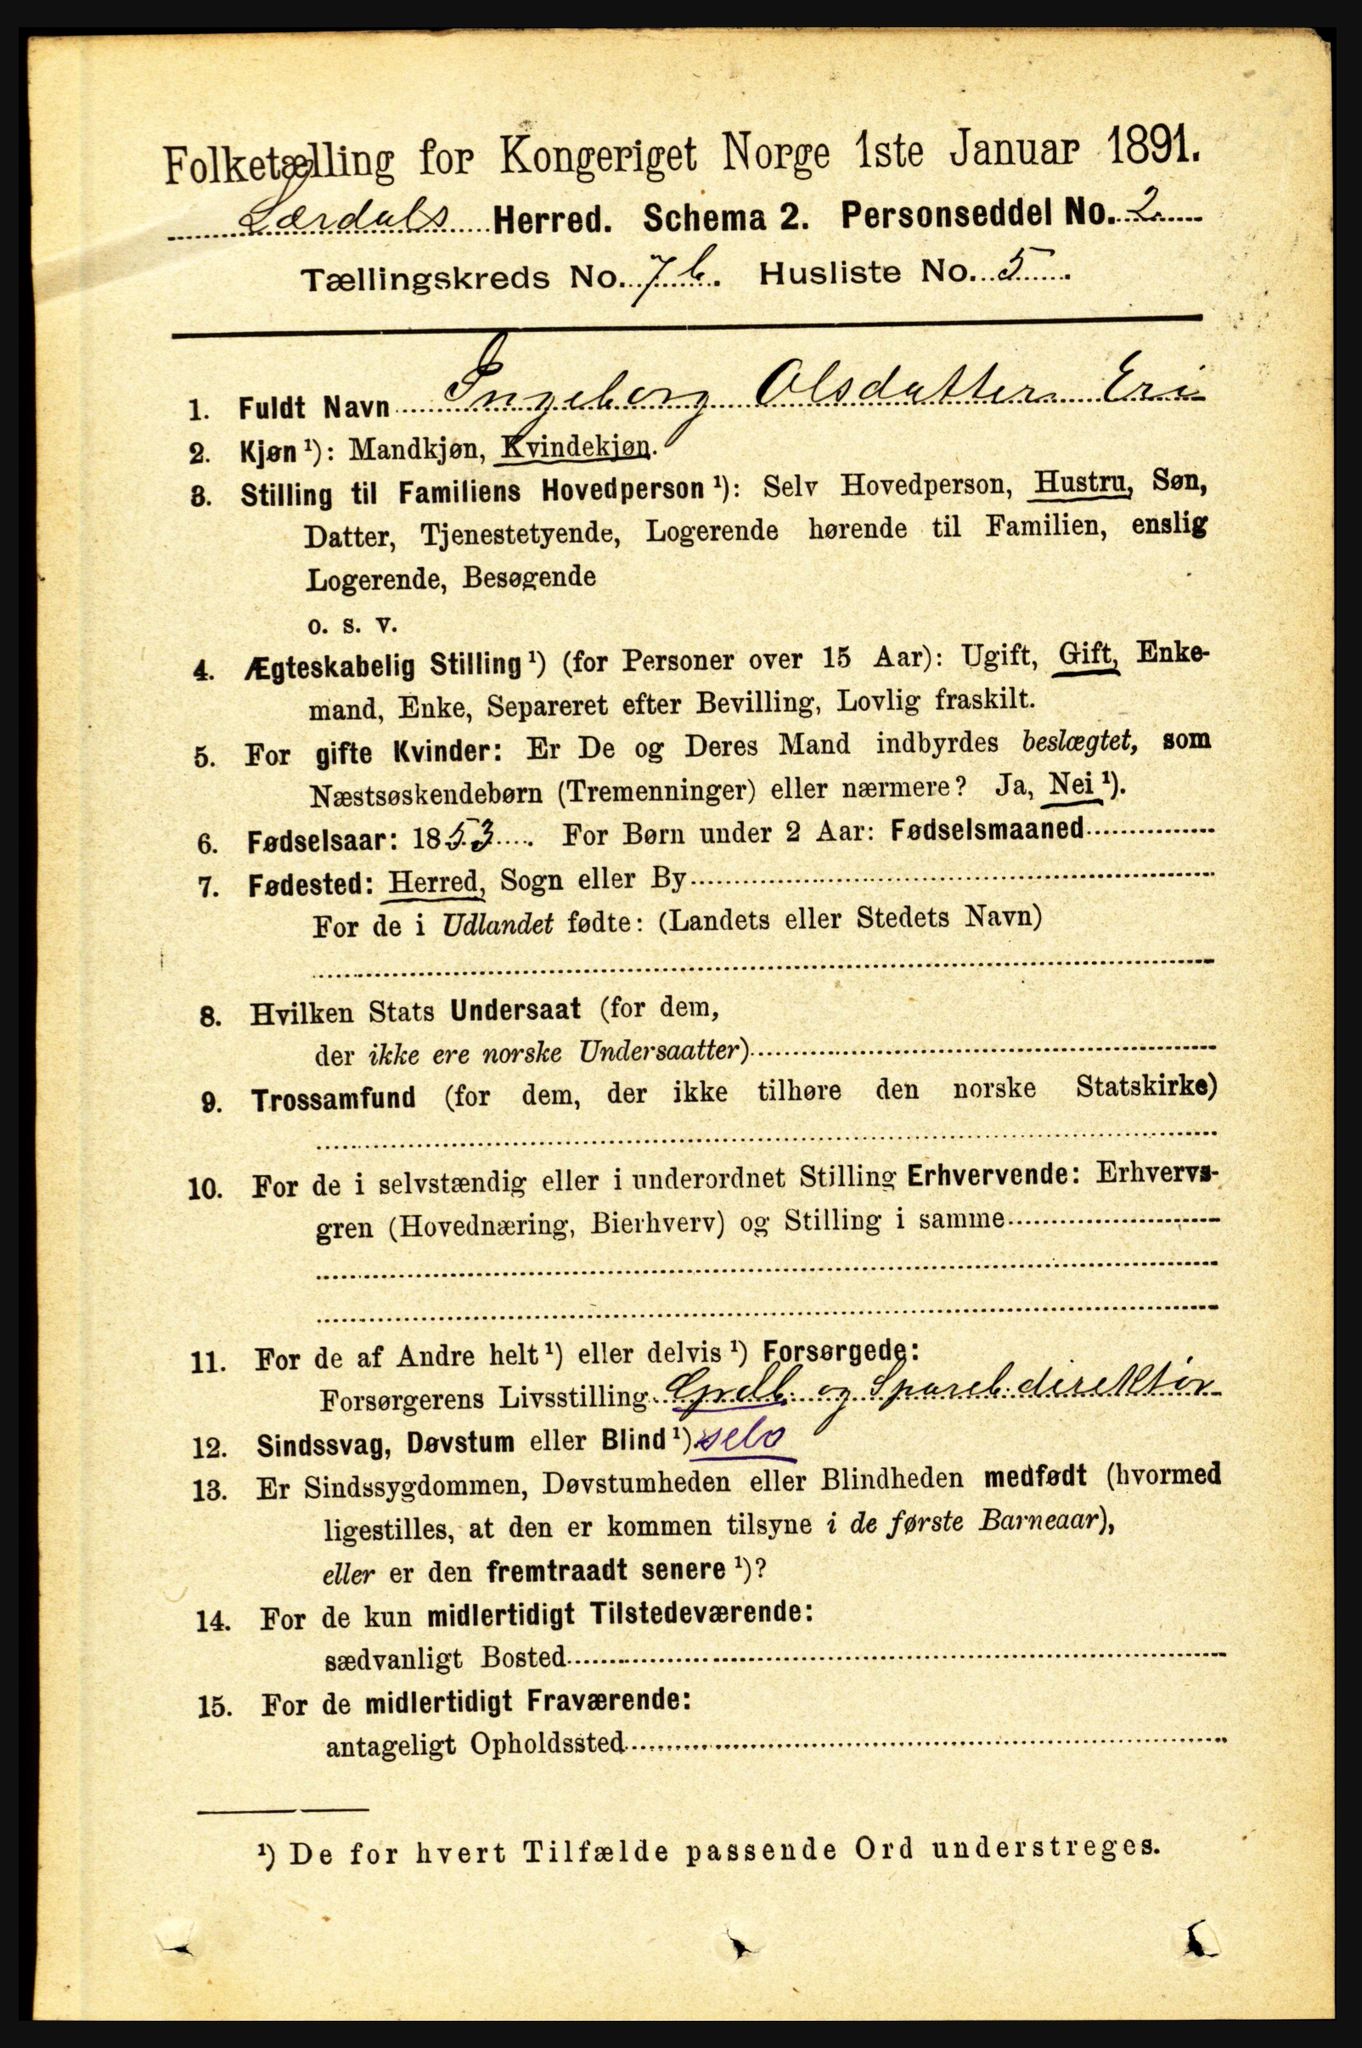 Folketælling for Kongeriget Norge 1ste Januar 1891.
Lærdals Herred. Schema 2. Personseddel No. 2
Tællingskreds No. 7b. Husliste No. 5.
1. Fuldt Navn Ingeborg Olsdatter Eri
2. Kjøn ¹): Mandkjøn, Kvindekjøn.
3. Stilling til Familiens Hovedperson ¹): Selv Hovedperson, Hustru, Søn,
Datter, Tjenestetyende, Logerende hørende til Familien, enslig
Logerende, Besøgende
o. s. v.
4. Ægteskabelig Stilling ¹) (for Personer over 15 Aar): Ugift, Gift, Enke-
mand, Enke, Separeret efter Bevilling, Lovlig fraskilt.
5. For gifte Kvinder: Er De og Deres Mand indbyrdes beslægtet, som
Næstsøskendebørn (Tremenninger) eller nærmere? Ja, Nei ¹).
6. Fødselsaar: 1853. For Børn under 2 Aar: Fødselsmaaned
7. Fødested: Herred, Sogn eller By
For de i Udlandet fødte: (Landets eller Stedets Navn)
8. Hvilken Stats Undersaat (for dem,
der ikke ere norske Undersaatter)
9. Trossamfund (for dem, der ikke tilhøre den norske Statskirke)
10. For de i selvstændig eller i underordnet Stilling Erhvervende: Erhvervs-
gren (Hovednæring, Bierhverv) og Stilling i samme
11. For de af Andre helt ¹) eller delvis ¹) Forsørgede:
Forsørgerens Livsstilling Grdb. og Spareb.direktør
12. Sindssvag, Døvstum eller Blind ¹) selv
13. Er Sindssygdommen, Døvstumheden eller Blindheden medfødt (hvormed
ligestilles, at den er kommen tilsyne i de første Barneaar),
eller er den fremtraadt senere ¹)?
14. For de kun midlertidigt Tilstedeværende:
sædvanligt Bosted
15. For de midlertidigt Fraværende:
antageligt Opholdssted
¹) De for hvert Tilfælde passende Ord understreges.